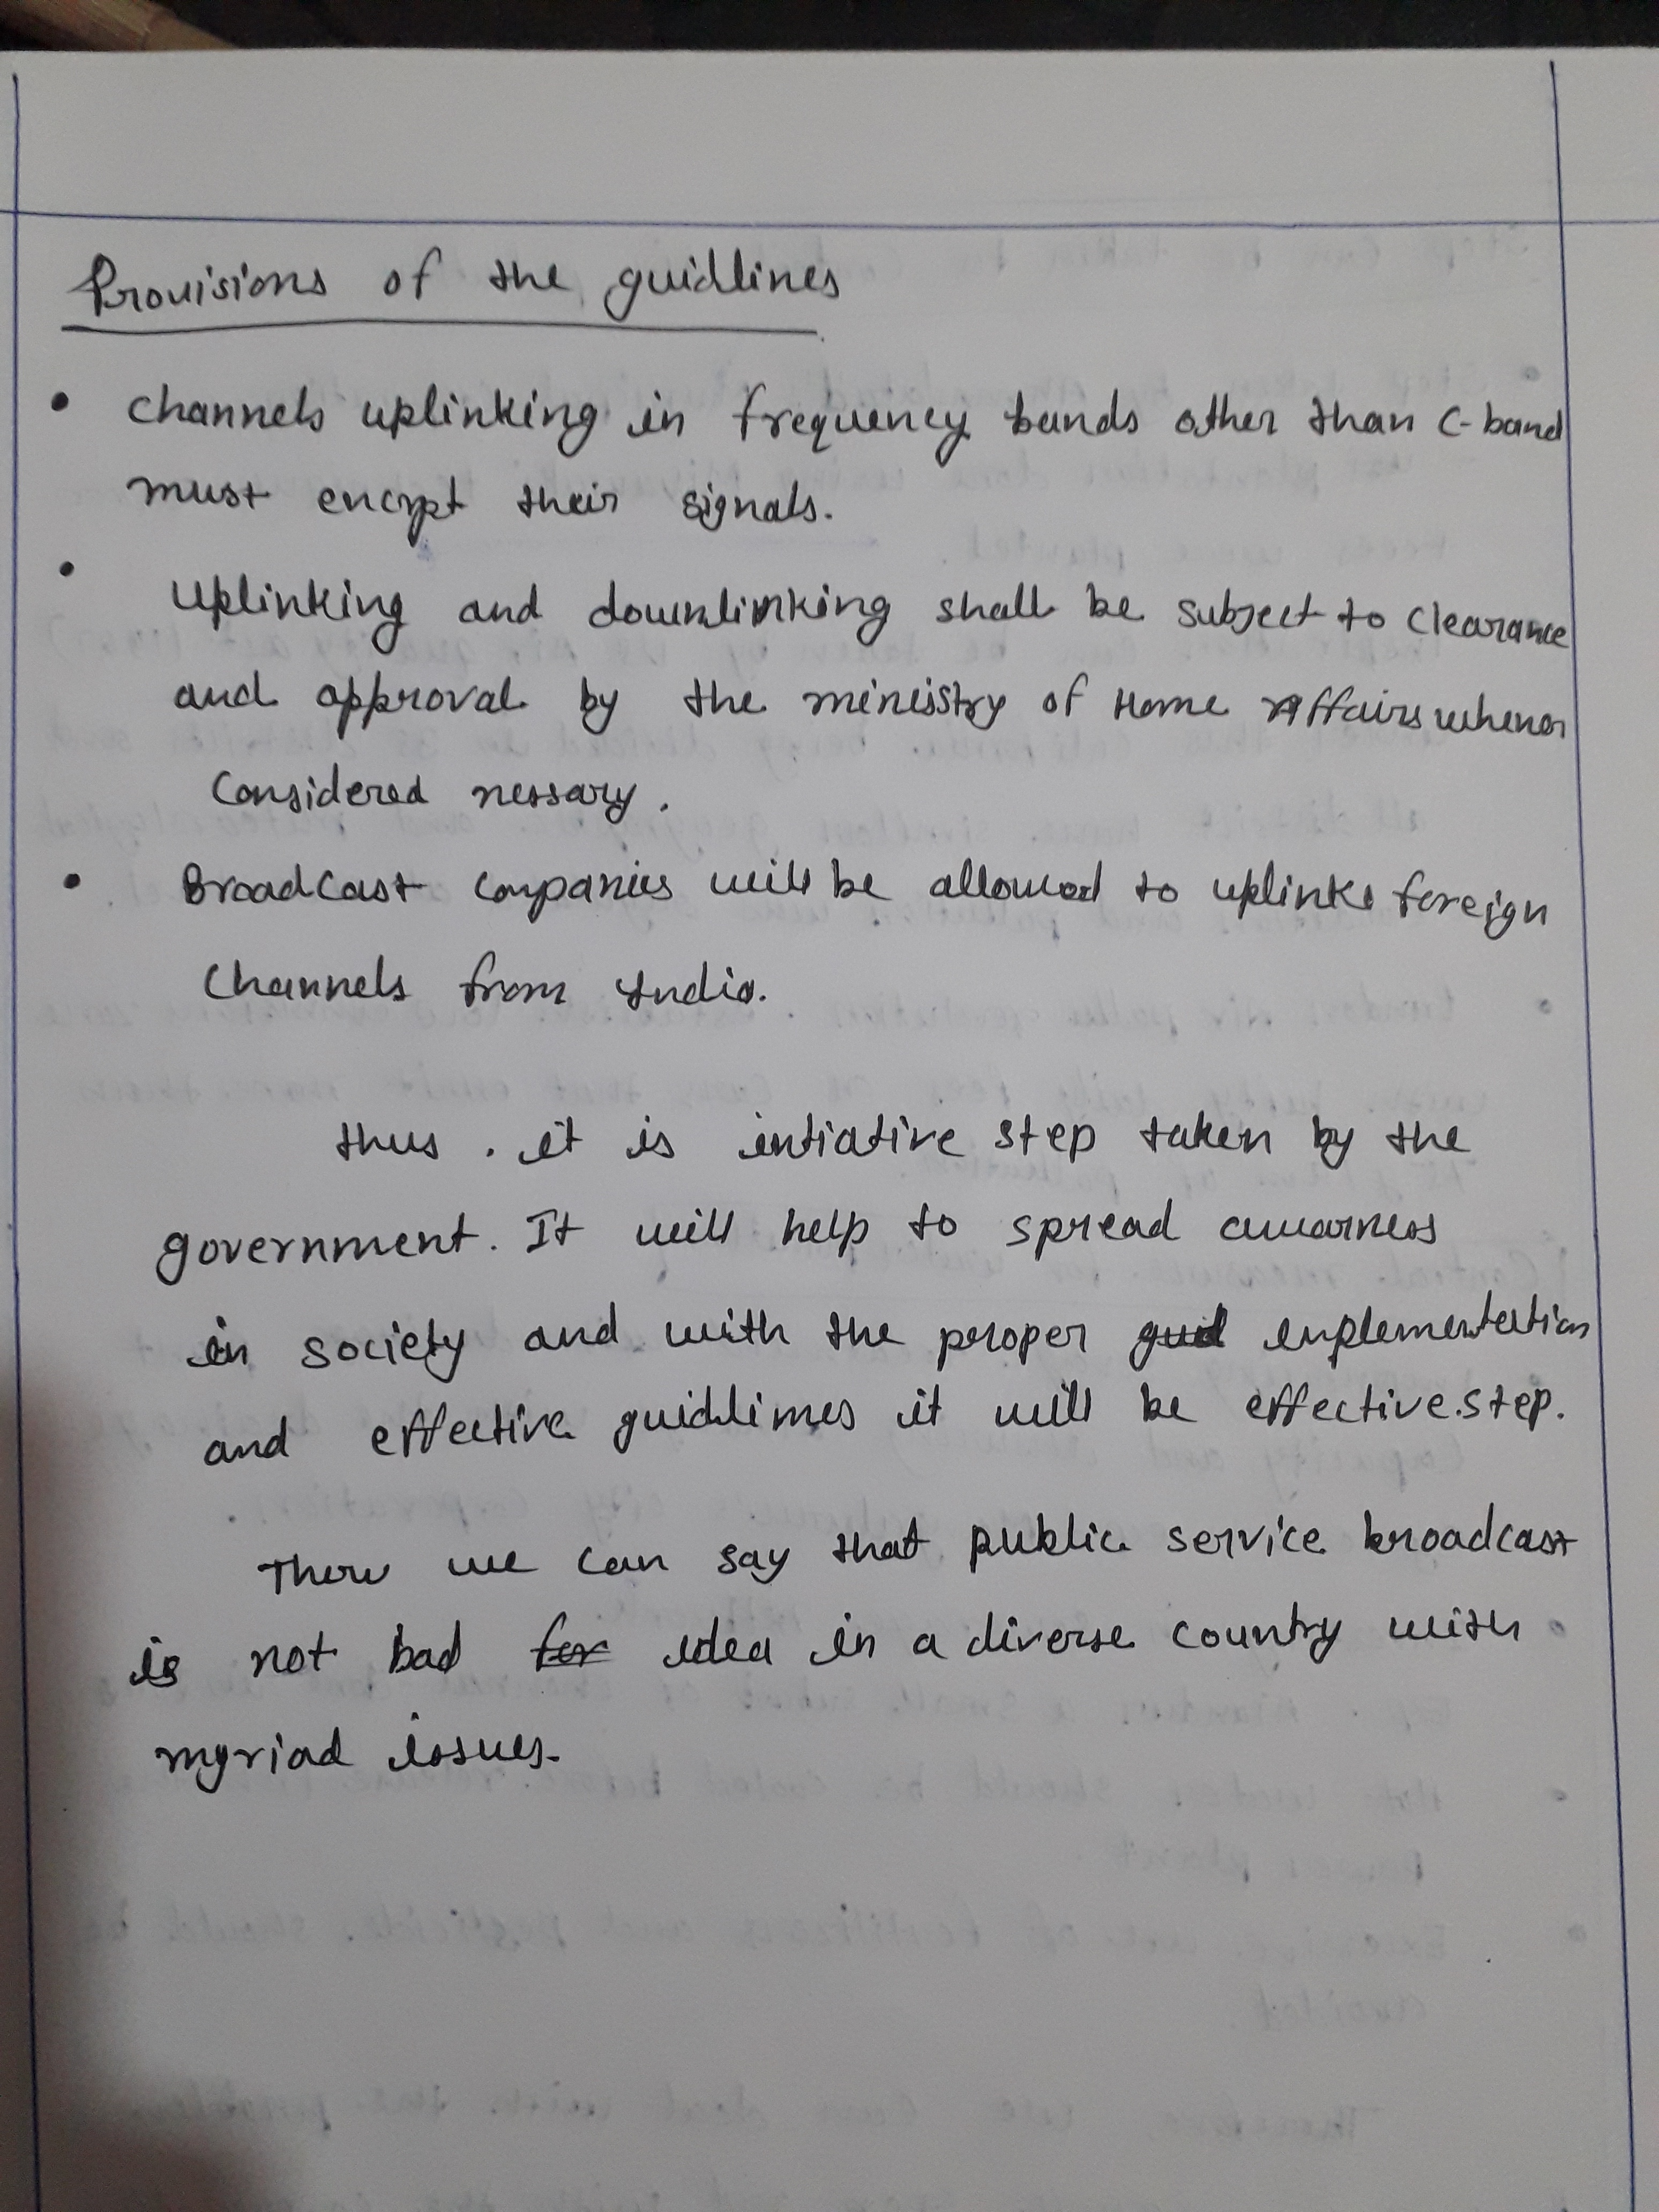 Provisions of the guidlines
• Channels uplinking in frequency bands other than C-band
must encrypt their signals.
• Uplinking and downlinking shall be subject to clearance
and approval by the ministry of Home Affairs whener
Considered nessary.
• Broadcast companies will be allowed to uplinks foreign
Channels from India.
Thus . it is intiative step taken by the
government. It will help to spread awarness
in society and with the proper implementation
and effective guidlines it will be effective step.
we can say that public service broadcast
is not bad for idea in a diverse country with
myriad issues.